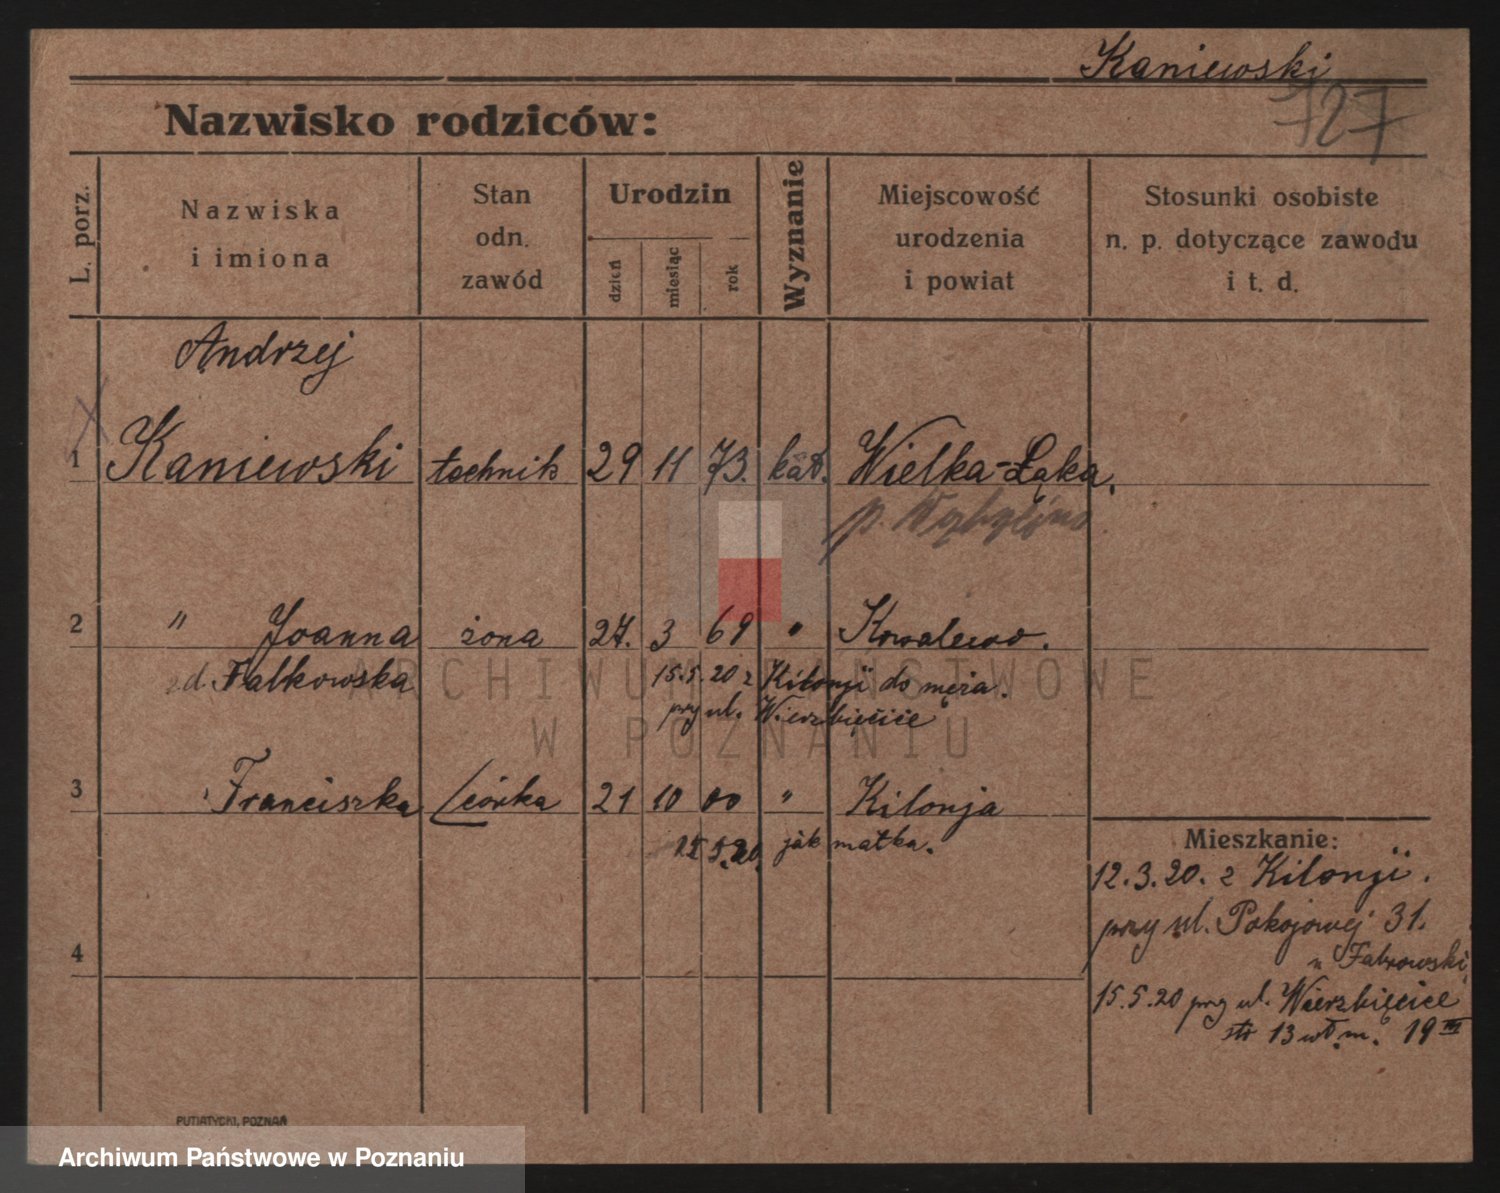 Kaniewski
727
Nazwisko rodziców:
L. porz.
Nazwiska
i imiona
Stan
odn.
zawód
Urodzin
dzień
miesiąc
rok
Wyznanie
Miejscowość
urodzenia
i powiat
Stosunki osobiste
n. p. dotyczące zawodu
i t. d.
Andrzej
1 Kaniewski technik 29 11 73. kat. Wielka-Łąka.
p.
2 " Joanna żona 27. 3 69 " Kowalewo.
zd. Falkowska 15.5.20 z Kilonji do męża.
przy ul. Wierzbięcice
3 Franciszka córka 21 10 00 " Kilonja
5.20. jak matka.
4
Mieszkanie:
12.3.20. z Kilonji.
przy ul. Pokojowej 31.
u
15.5.20 przy ul. Wierzbięcice
13 wł. m. 19 III
PUTIATYCKI, POZNAŃ
ARCHIWUM PAŃSTWOWE
W POZNANIU
Archiwum Państwowe w Poznaniu